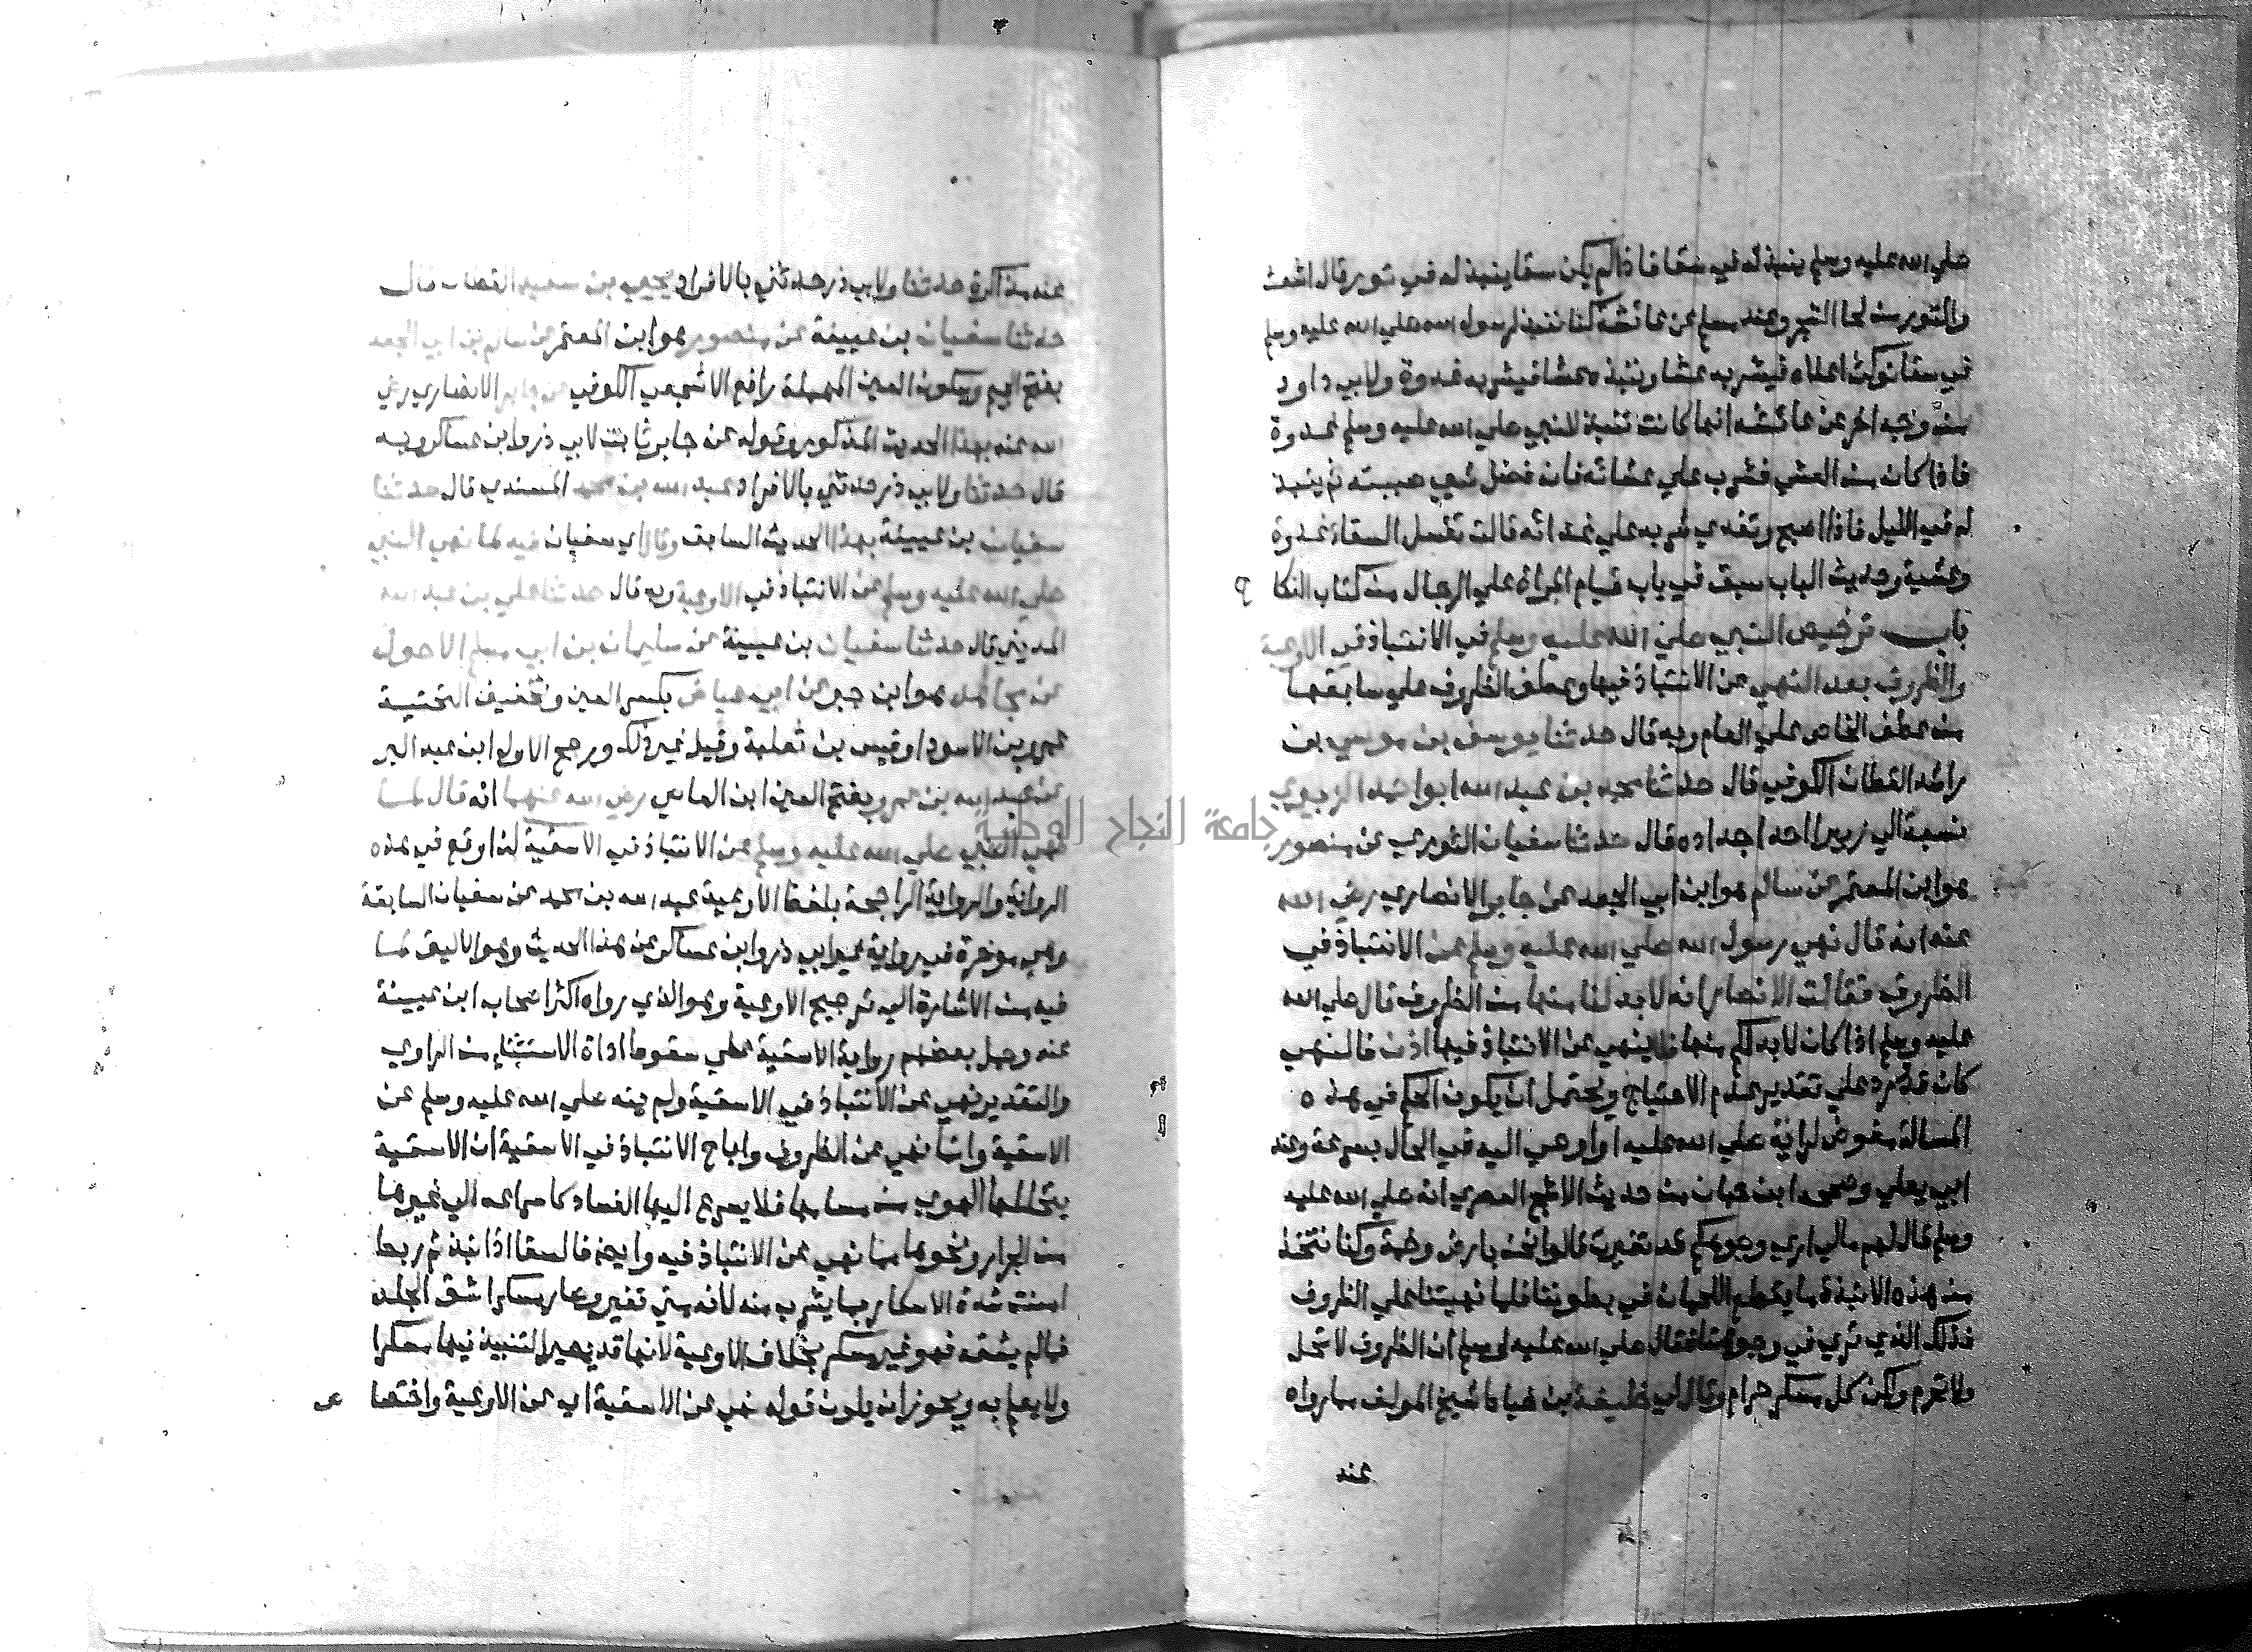 صلي الله عليه وسلم ينبذ له في سقا فاذا لم يكن سقا ينبذ له في تور قال اشعث
والتور من لحا الشجر وعند مسلم عن عائشة كنا ننبذ لرسول الله صلي الله عليه وسلم
في سقا نوكئ اعلاه فيشربه عشا وننبذه عشا فيشربه غدوة ولابي داود
من وجه اخر عن عائشة انها كانت تنبذ للنبي صلي الله عليه وسلم غدوة
فاذا كان من العشي فشرب علي عشائه فان فضل شي صببته ثم ينبذ
له في الليل فاذا اصبح وتغدي شربه علي غدائه قالت نغسل السقا غدوة
وعشية وحديث الباب سبق في باب قيام المراة علي الرجال من كتاب النكا ح
باب ترخيص النبي صلي الله عليه وسلم في الانتباذ في الاوعية
والظروف بعد النهي عن الانتباذ فيها وعطف الظروف علي سابقها
من عطف الخاص علي العام وبه قال حدثنا يوسف بن موسي بن
راشد القطان الكوفي قال حدثنا محمد بن عبد الله ابو احمد الزبيري
نسبة الي زبير احد اجداده قال حدثنا سفيان الثوري عن منصور
هو ابن المعتمر عن سالم هو ابن ابي الجعد عن جابر الانصاري رضي الله
عنه انه قال نهي رسول الله صلي الله عليه وسلم عن الانتباذ في
الظروف فقالت الانصار انه لا بد لنا منها من الظروف قال صلي الله
عليه وسلم اذا كان لا بد لكم منها فلا ينهي عن الانتباذ فيها اذن فالنهي
كان قد ورد علي تقدير عدم الاحتياج ويحتمل ان يكون الحكم في هذه
المسالة مفوض لرايه صلي الله عليه او اوحي اليه في الحال بسرعة وعند
ابي يعلي وصححه ابن حبان من حديث الاشج العصري انه صلي الله عليه
وسلم قال لهم مالي اري وجوهكم قد تغيرت قالوا نحن بارض وخمة وكنا نتخذ
من هذه الانبذة ما يقطع اللحمان في بطوننا فلما نهيتنا علي الظروف
فذلك الذي تري في وجوهنا فقال صلي الله عليه وسلم ان الظروف لا تحل
ولا تحرم ولكن كل مسكر حرام وقال لي خليفة بن خياط شيخ المولف مما رواه
عنه
عنه مذاكرة حدثنا ولابي ذر حدثني بالافراد يحيي بن سعيد القطان قال
حدثنا سفيان بن عيينة عن منصور هو ابن المعتمر عن سالم بن ابي الجعد
بفتح الجيم وسكون العين المهملة رافع الاشجعي الكوفي عن جابر الانصاري رضي
الله عنه بهذا الحديث المذكور وقوله عن جابر ثابت لابي ذر وابن عساكر وبه
قال حدثنا ولابي ذر حدثني بالافراد عبد الله بن محمد المسندي قال حدثنا
سفيان بن عيينة بهذا الحديث السابق وقال اي سفيان فيه لما نهي النبي
صلي الله عليه وسلم عن الانتباذ في الاوعية وبه قال حدثنا علي بن عبد الله
المديني قال حدثنا سفيان بن عيينة عن سليمان بن ابي مسلم الاحول
عن مجاهد هو ابن جبر عن ابي عياض بكسر العين وتخفيف التحتية
عمرو بن الاسود او قيس بن ثعلبة وقيل غير ذلك ورجح الاول ابن عبد البر
عن عبد الله بن عمرو بفتح العين ابن العاصي رضي الله عنهما انه قال لما
نهي النبي صلي الله عليه وسلم عن الانتباذ في الاسقية كذا وقع في هذه
الرواية والرواية الراجحة بلفظ الاوعية عبد الله بن محمد عن سفيان السابقة
وهي موخرة في رواية غير ابي ذر وابن عساكر عن هذا الحديث وهو الاليق لما
فيه من الاشارة الي ترجيح الاوعية وهو الذي رواه اكثر اصحاب ابن عيينة
عنه وحمل بعضهم رواية الاسقية علي سقوط اداة الاستثناء من الراوي
والتقدير نهي عن الانتباذ في الاسقية ولم ينه صلي الله عليه وسلم عن
الاسقية وانما نهي عن الظروف واباح الانتباذ في الاسقية لان الاسقية
يتخللها الهوي من مسامها فلا يسرع اليها الفساد كاسراعه الي غيرها
من الجرار ونحوها مما نهي عن الانتباذ فيه وايضا فالسقا اذا نبذ ثم ربط
امنت شدة الاسكار بما يشرب منه لانه متي تغير وصار مسكرا شق الجلد
فما لم يشقه فهو غير مسكر بخلاف الاوعية لانها قد يصير النبيذ فيها مسكرا
ولا يعلم به ويجوز ان يكون قوله نهي عن الاسقية اي عن الاوعية واختصا ص
جامعة النجاح الوطنية